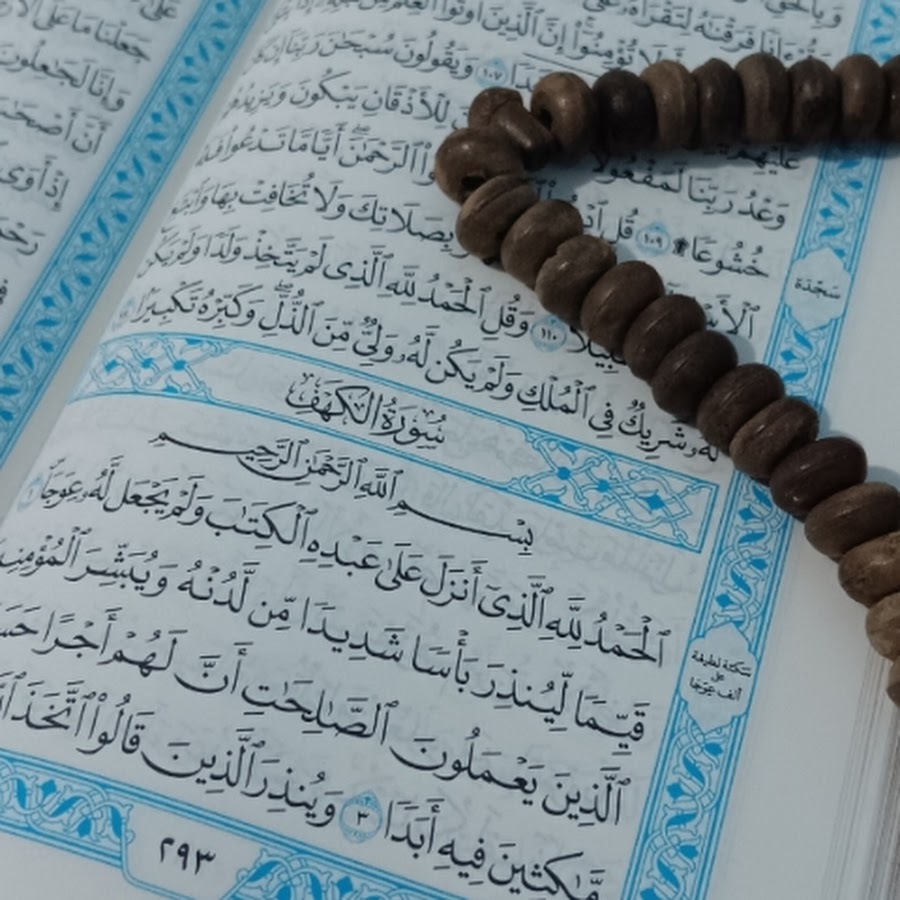 وَبِٱلْحَقِّ
فَرَقْنَٰهُ لِتَقْرَأَهُۥ عَلَى
تُؤْمِنُوٓا۟ إِنَّ ٱلَّذِينَ أُوتُوا۟ ٱلْعِلْمَ مِن
١٠٧ وَيَقُولُونَ سُبْحَٰنَ رَبِّنَآ إِن
وَعْدُ رَبِّنَا لَمَفْعُولًا لِلْأَذْقَانِ يَبْكُونَ وَيَزِيدُهُمْ
خُشُوعًا ۩ ١٠٩ قُلِ ٱدْعُوا۟ ٱلرَّحْمَٰنَ ۖ أَيًّا مَّا تَدْعُوا۟ فَلَهُ
ٱلْأَسْ بِصَلَاتِكَ وَلَا تُخَافِتْ بِهَا وَٱبْتَغِ
سَبِيلًا ١١٠ وَقُلِ ٱلْحَمْدُ لِلَّهِ ٱلَّذِى لَمْ يَتَّخِذْ وَلَدًا وَلَمْ يَكُن
لَّهُۥ شَرِيكٌ فِى ٱلْمُلْكِ وَلَمْ يَكُن لَّهُۥ وَلِىٌّ مِّنَ ٱلذُّلِّ ۖ وَكَبِّرْهُ تَكْبِيرًۢا
سُورَةُ الكَهْفِ
بِسْمِ ٱللَّهِ ٱلرَّحْمَٰنِ ٱلرَّحِيمِ
ٱلْحَمْدُ لِلَّهِ ٱلَّذِىٓ أَنزَلَ عَلَىٰ عَبْدِهِ ٱلْكِتَٰبَ وَلَمْ يَجْعَل لَّهُۥ عِوَجَا ۜ ١
قَيِّمًا لِّيُنذِرَ بَأْسًا شَدِيدًا مِّن لَّدُنْهُ وَيُبَشِّرَ ٱلْمُؤْمِنِينَ
ٱلَّذِينَ يَعْمَلُونَ ٱلصَّٰلِحَٰتِ أَنَّ لَهُمْ أَجْرًا حَسَ
مَّٰكِثِينَ فِيهِ أَبَدًا ٣ وَيُنذِرَ ٱلَّذِينَ قَالُوا۟ ٱتَّخَذَ ٱ
٢٩٣
سَجْدَة
سكتة لطيفة
على
ألف عوجا
جَعَلْنَا مَا عَلَى
وَإِنَّا لَجَٰعِلُونَ
أَنَّ أَصْحَٰبَ
إِذْ أَوَى